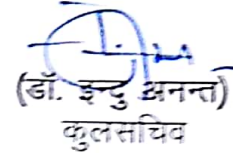 (डॉ. इन्दु अनन्त)
कुलसचिव